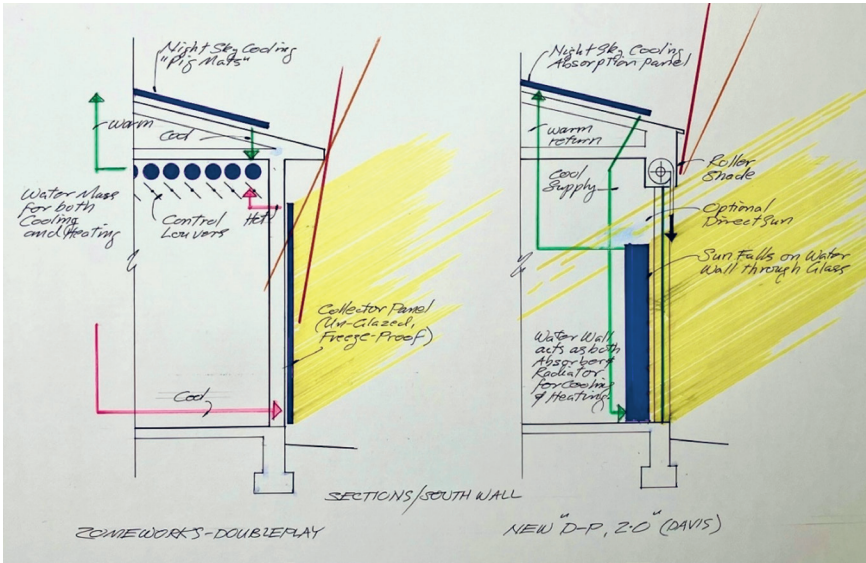 Night Sky Cooling
"Pig Mats"
warm
Cool
Water Mass
for both
Cooling
and Heating
Control
Louvers
Hot
Collector Panel
(Un-Glazed,
Freeze-Proof)
Cool
ZOMEWORKS-DOUBLEPLAY
SECTIONS/SOUTH WALL
Night Sky Cooling
Absorption panel
warm
return
Cool
Supply
Roller
Shade
Optional
Direct Sun
Sun Falls on Water
Wall through Glass
Water Wall
acts as both
Absorber &
Radiator
for Cooling
& Heating
NEW "D-P, 2.0" (DAVIS)